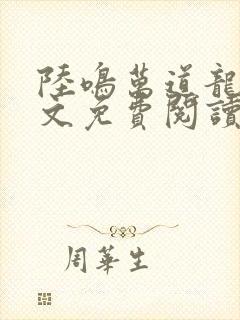 陸鳴萬道龍
文免費閱讀
周華生